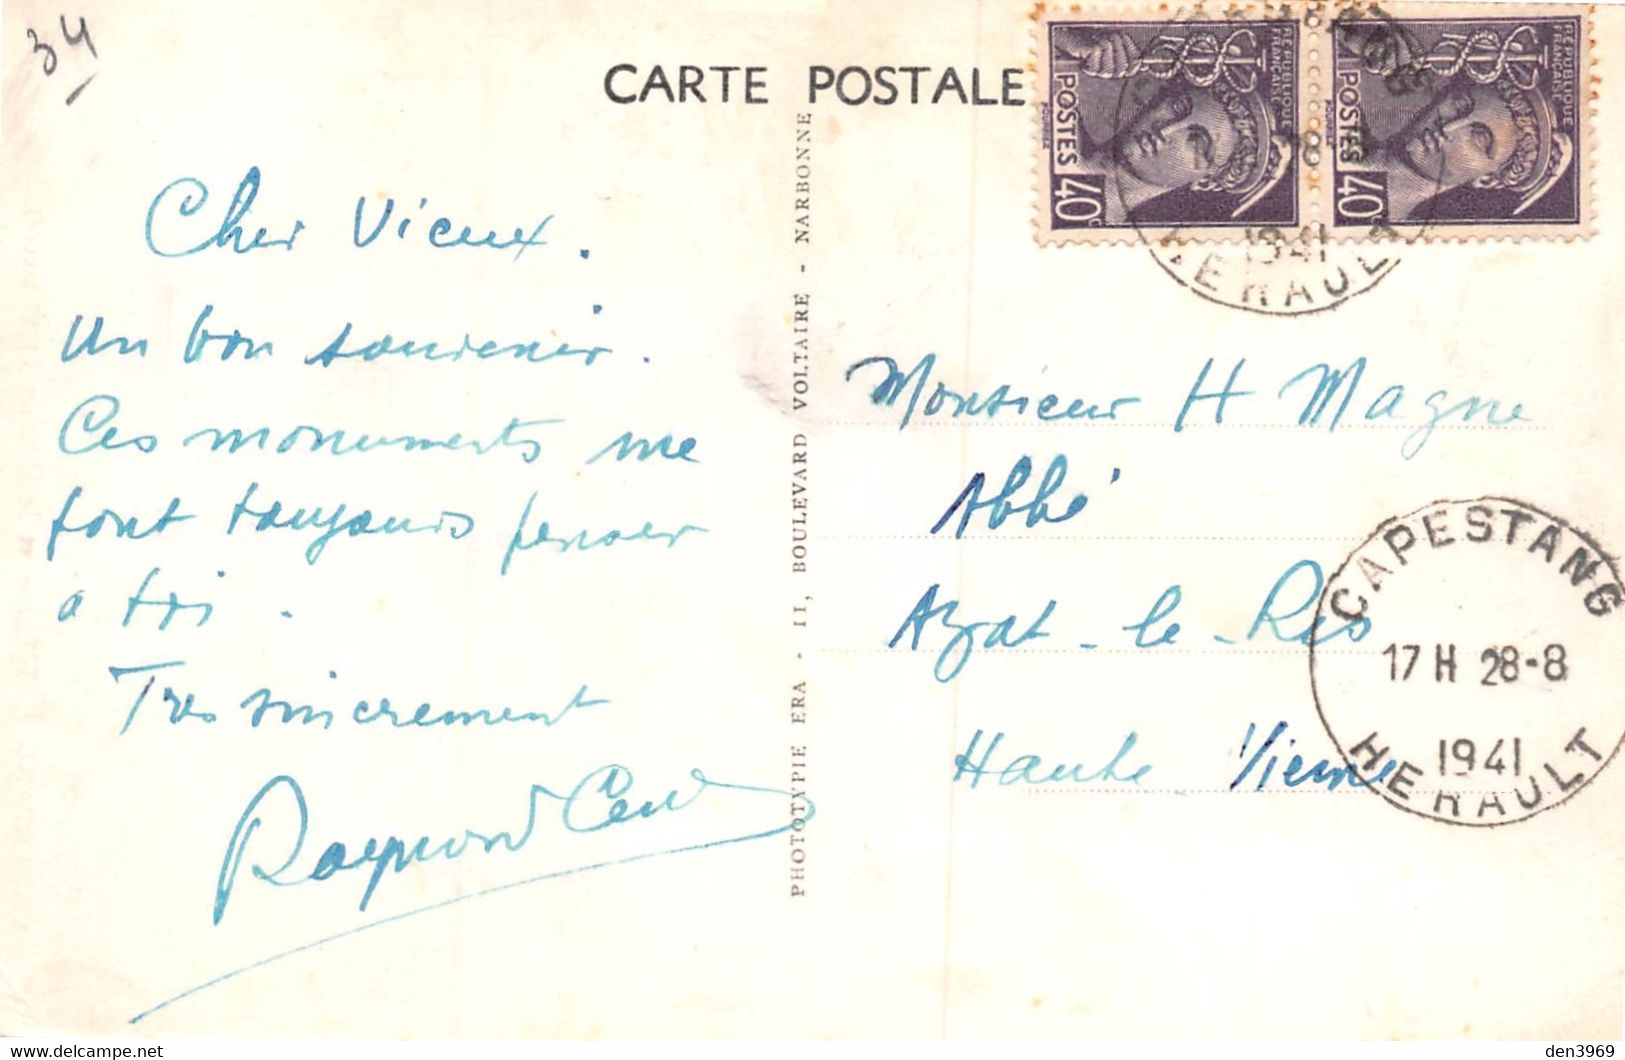 34
CARTE POSTALE
RÉPUBLIQUE FRANÇAISE
POSTES 40c
RÉPUBLIQUE FRANÇAISE
POSTES 40c
1941
HERAULT
Cher Vieux.
Un bon souvenir.
Ces monuments me
font toujours penser
a toi.
Tres sincerement
Raymond
PHOTOTYPIE ERA - 11, BOULEVARD VOLTAIRE - NARBONNE
Monsieur H Magne
Abbé
Azat-le-Ris
Haute Vienne
CAPESTANG
17 H 28-8
1941
HERAULT
den3969